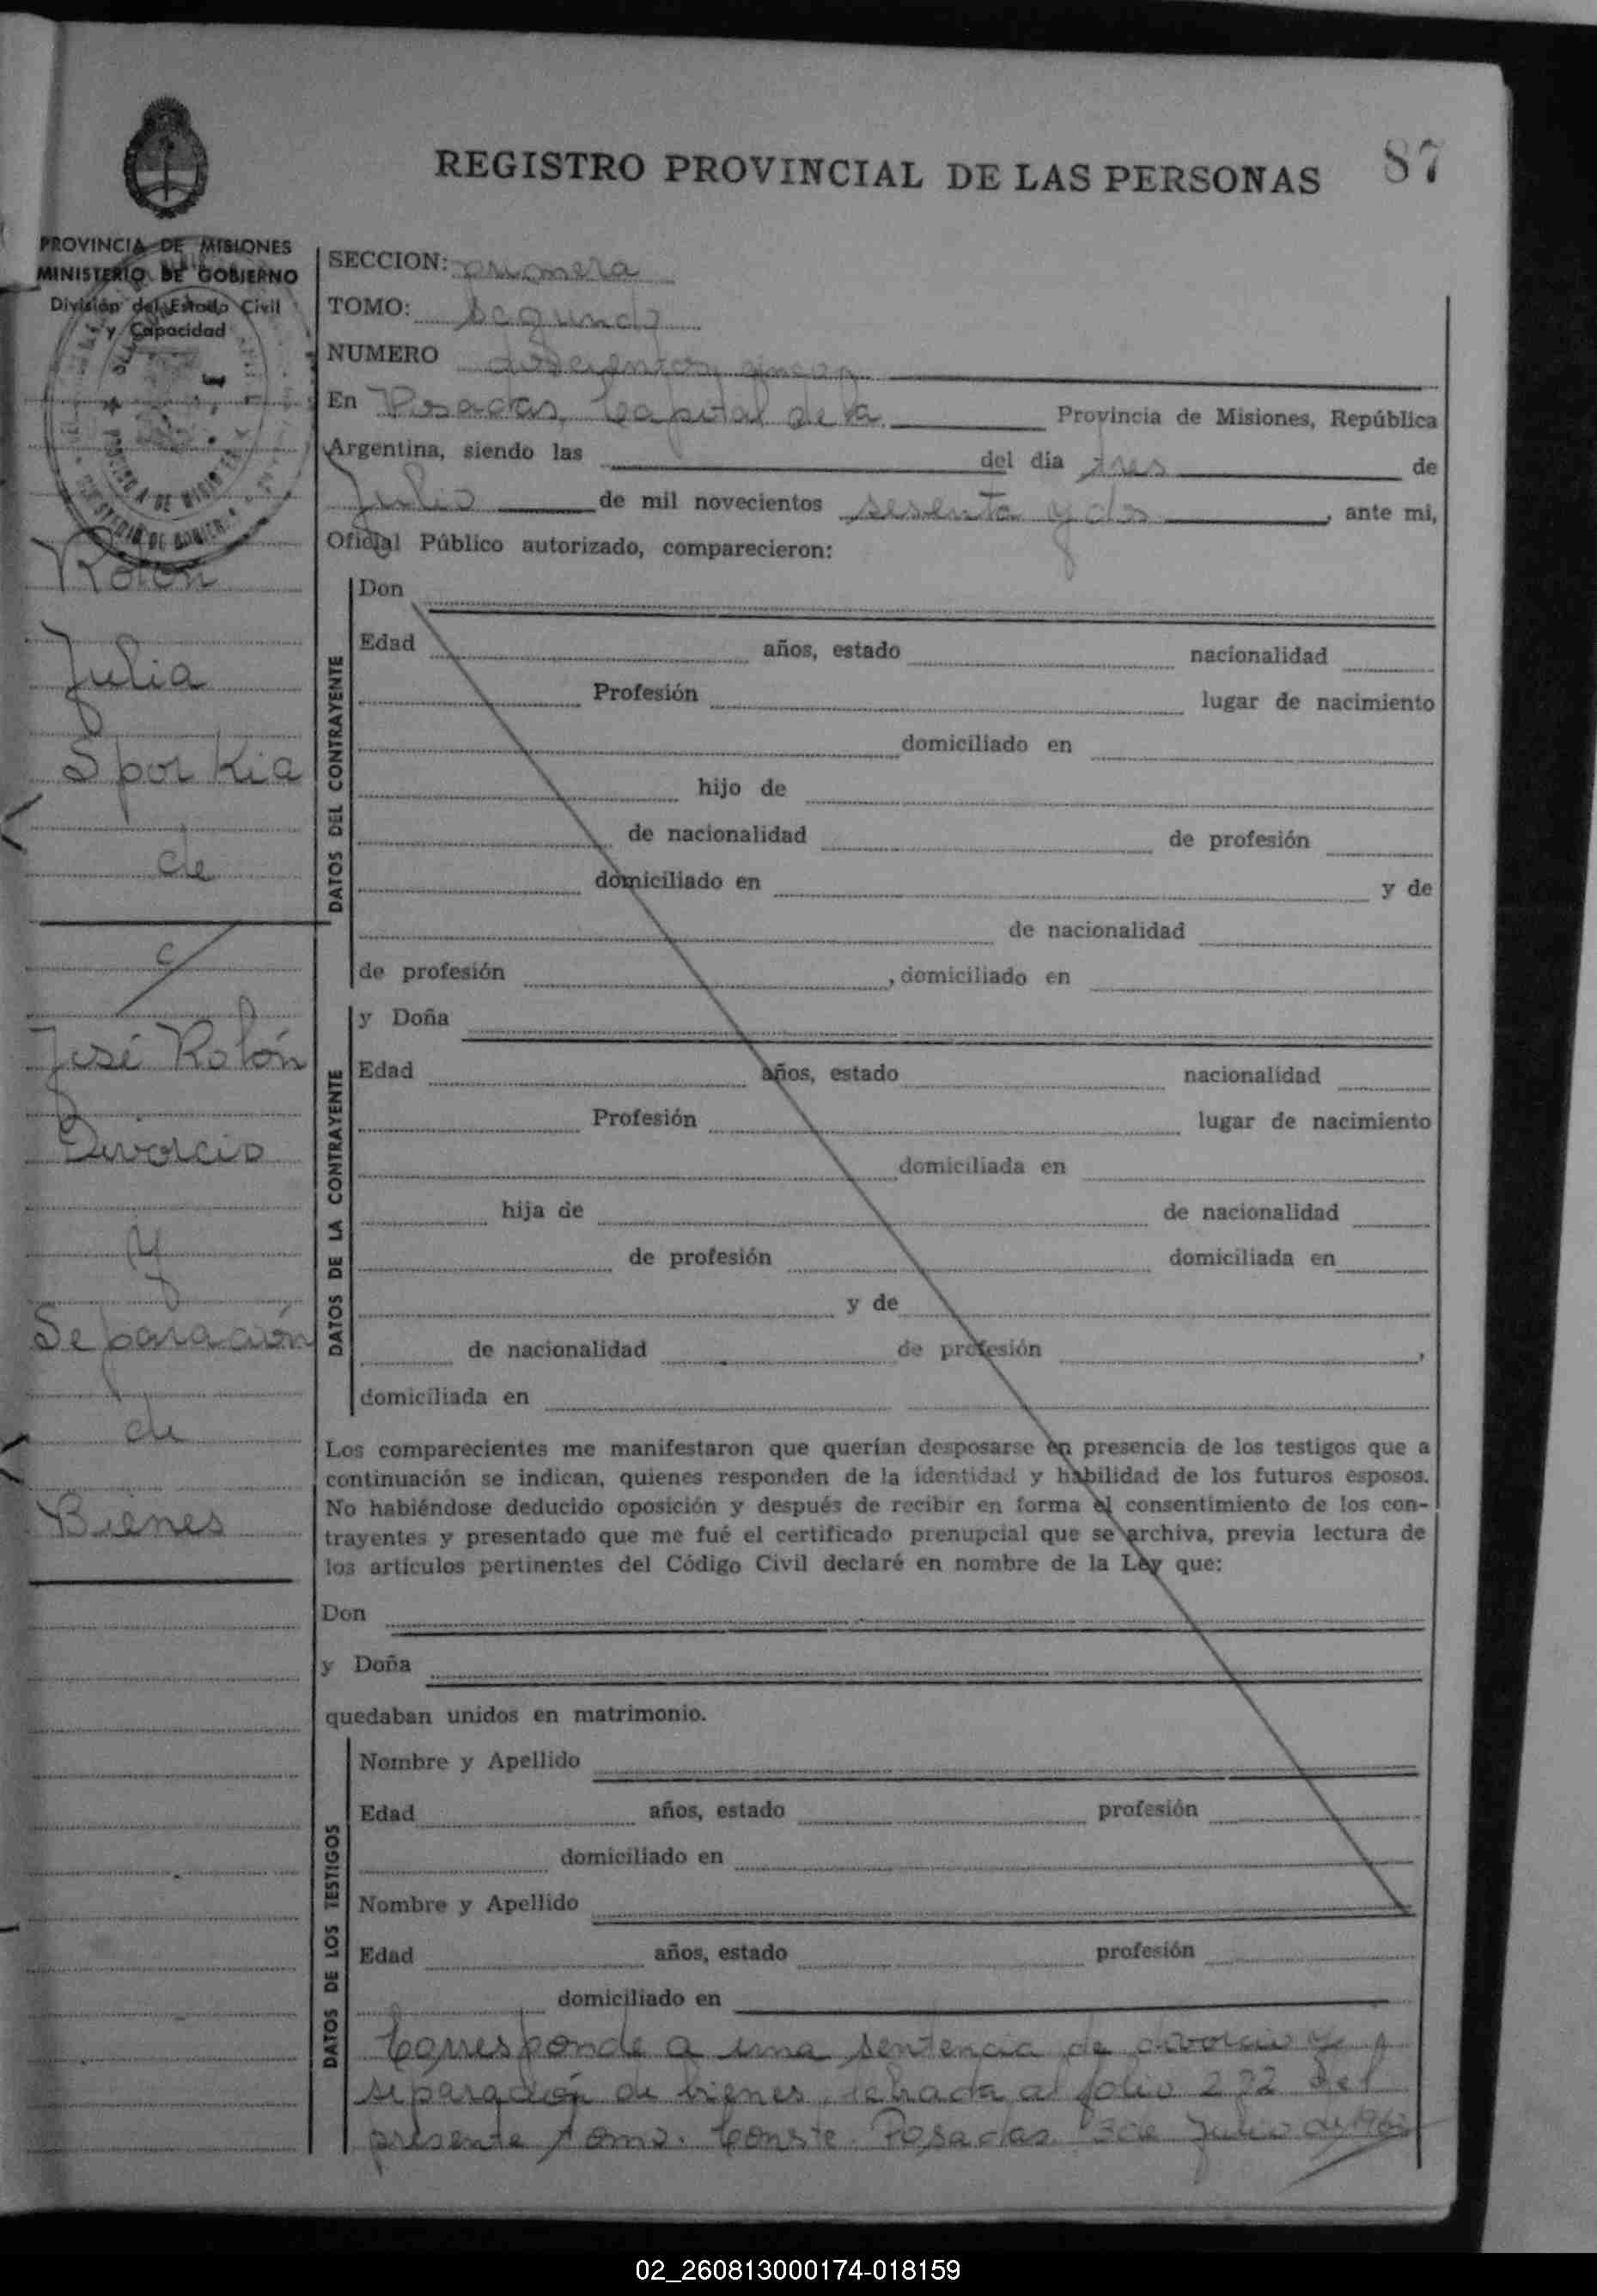 REGISTRO PROVINCIAL DE LAS PERSONAS 87
PROVINCIA DE MISIONES
MINISTERIO DE GOBIERNO
División del Estado Civil
y Capacidad
Rolón
Julia
Sporkia
de
c/
José Rolón
Divorcio
y
Separación
de
Bienes
SECCION: primera
TOMO: segundo
NUMERO doscientos cinco
En Posadas, Capital de la Provincia de Misiones, República
Argentina, siendo las del dia tres de
Julio de mil novecientos sesenta y dos, ante mi,
Oficial Público autorizado, comparecieron:
DATOS DEL CONTRAYENTE
Don
Edad años, estado nacionalidad
Profesión lugar de nacimiento
domiciliado en
hijo de
de nacionalidad de profesión
domiciliado en y de
de nacionalidad
de profesión , domiciliado en
DATOS DE LA CONTRAYENTE
y Doña
Edad años, estado nacionalidad
Profesión lugar de nacimiento
domiciliada en
hija de de nacionalidad
de profesión domiciliada en
y de
de nacionalidad de profesión ,
domiciliada en
Los comparecientes me manifestaron que querían desposarse en presencia de los testigos que a
continuación se indican, quienes responden de la identidad y habilidad de los futuros esposos.
No habiéndose deducido oposición y después de recibir en forma el consentimiento de los con-
trayentes y presentado que me fué el certificado prenupcial que se archiva, previa lectura de
los artículos pertinentes del Código Civil declaré en nombre de la Ley que:
Don
y Doña
quedaban unidos en matrimonio.
DATOS DE LOS TESTIGOS
Nombre y Apellido
Edad años, estado profesión
domiciliado en
Nombre y Apellido
Edad años, estado profesión
domiciliado en
Corresponde a una sentencia de divorcio y
separación de bienes, labrada al folio 272 del
presente tomo. Conste. Posadas 3 de Julio de 1962
02_260813000174-018159